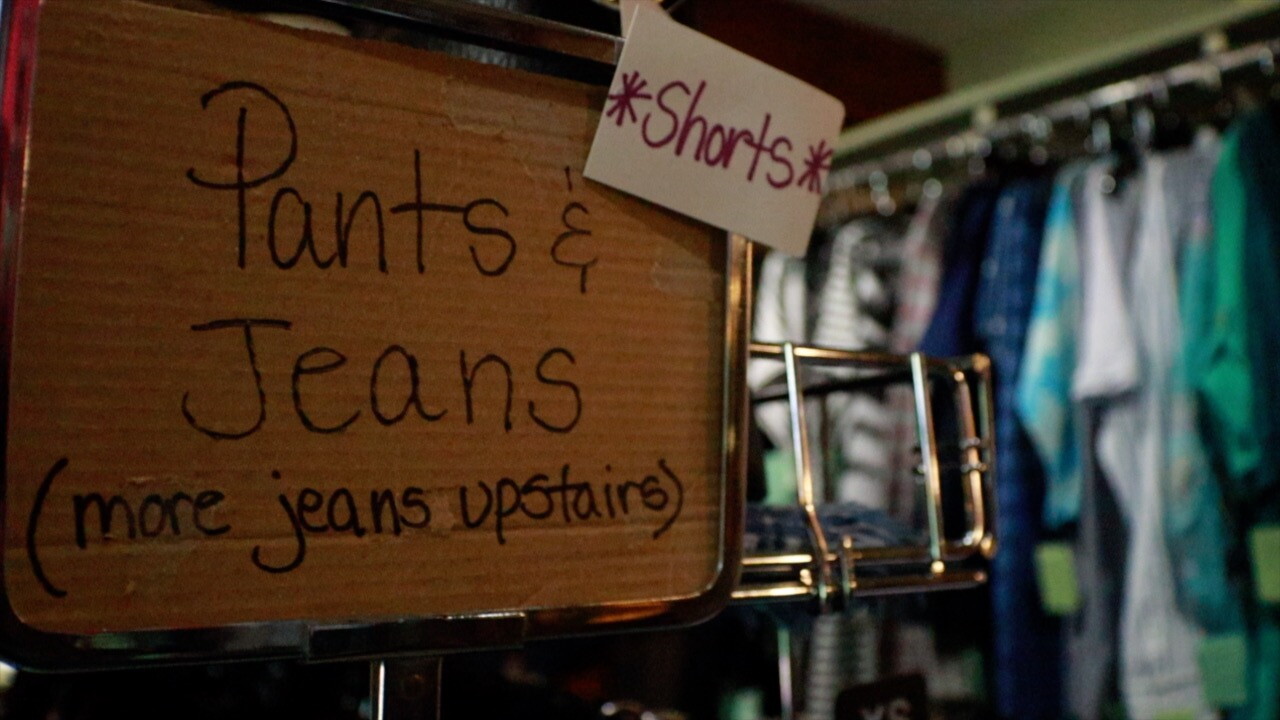 Pants &
Jeans
(more jeans upstairs)
*Shorts*
XS